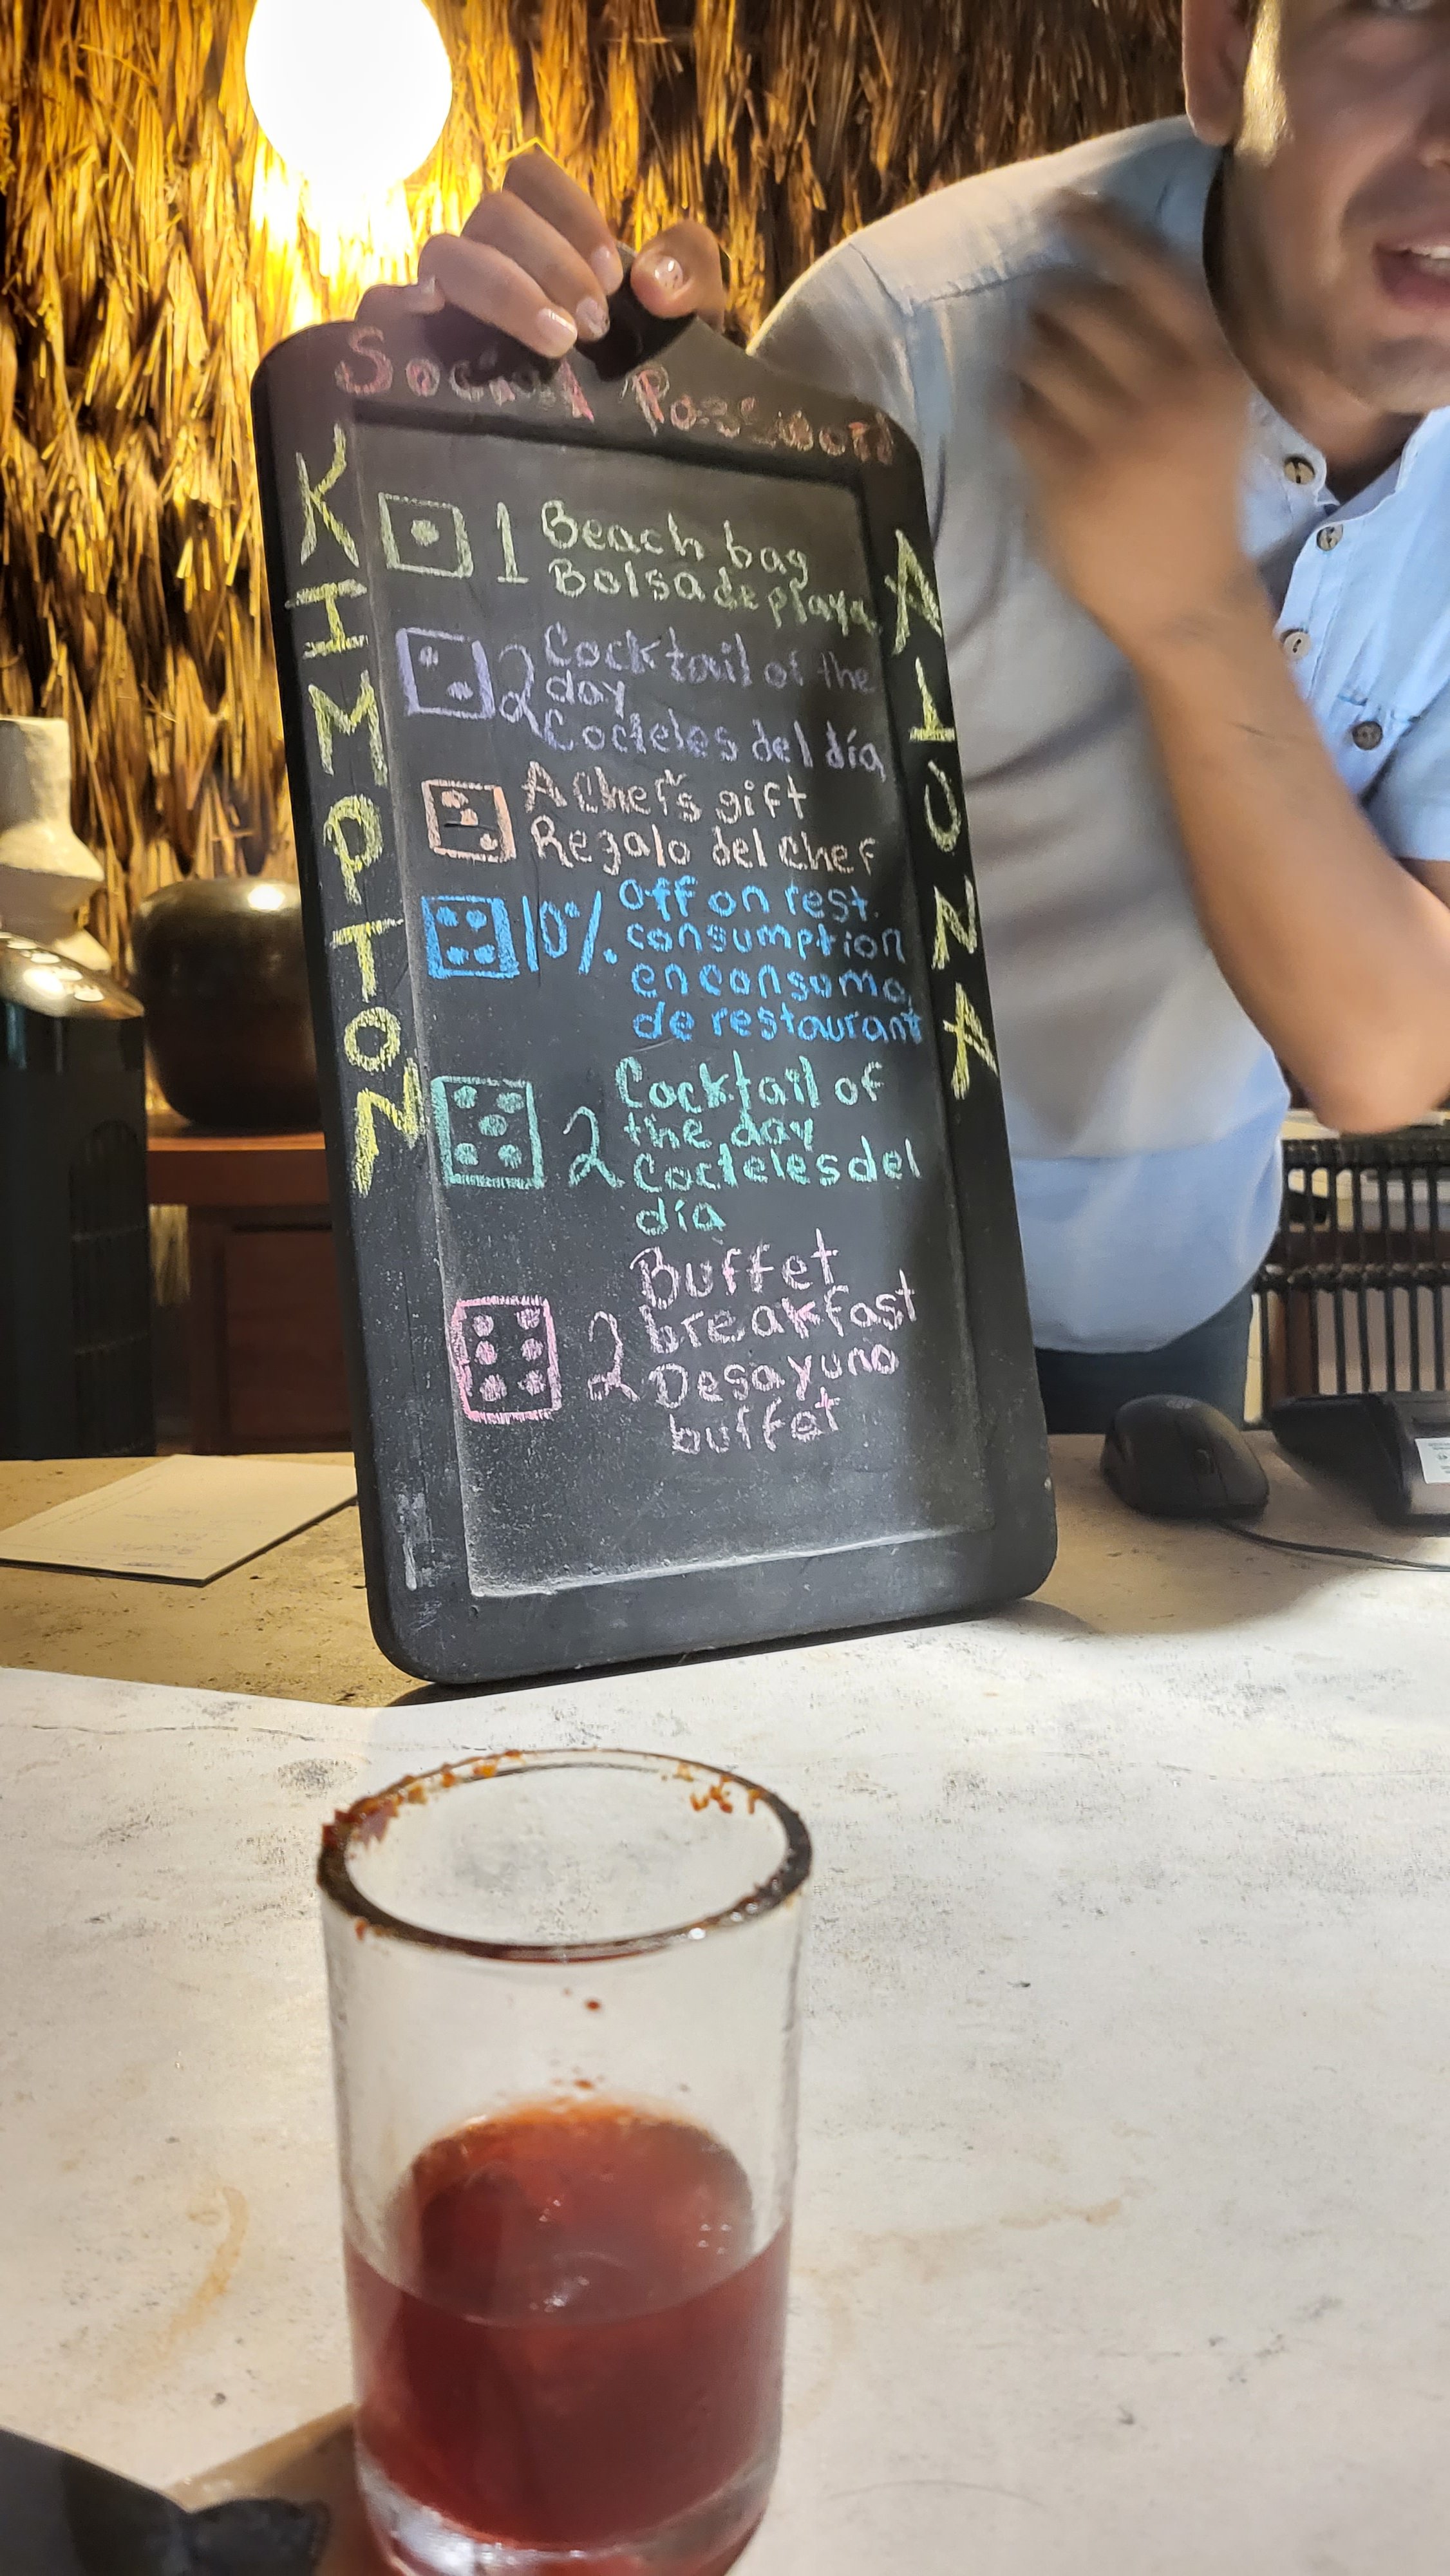 Social Password
KIMPTON
1 Beach bag
Bolsa de playa
2 Cocktail of the
day
Cocteles del día
A chef's gift
Regalo del chef
10% Off on rest.
consumption
en consumo
de restaurant
2 Cocktail of
the day
Cocteles del
día
2 Buffet
breakfast
Desayuno
buffet
ALUNA